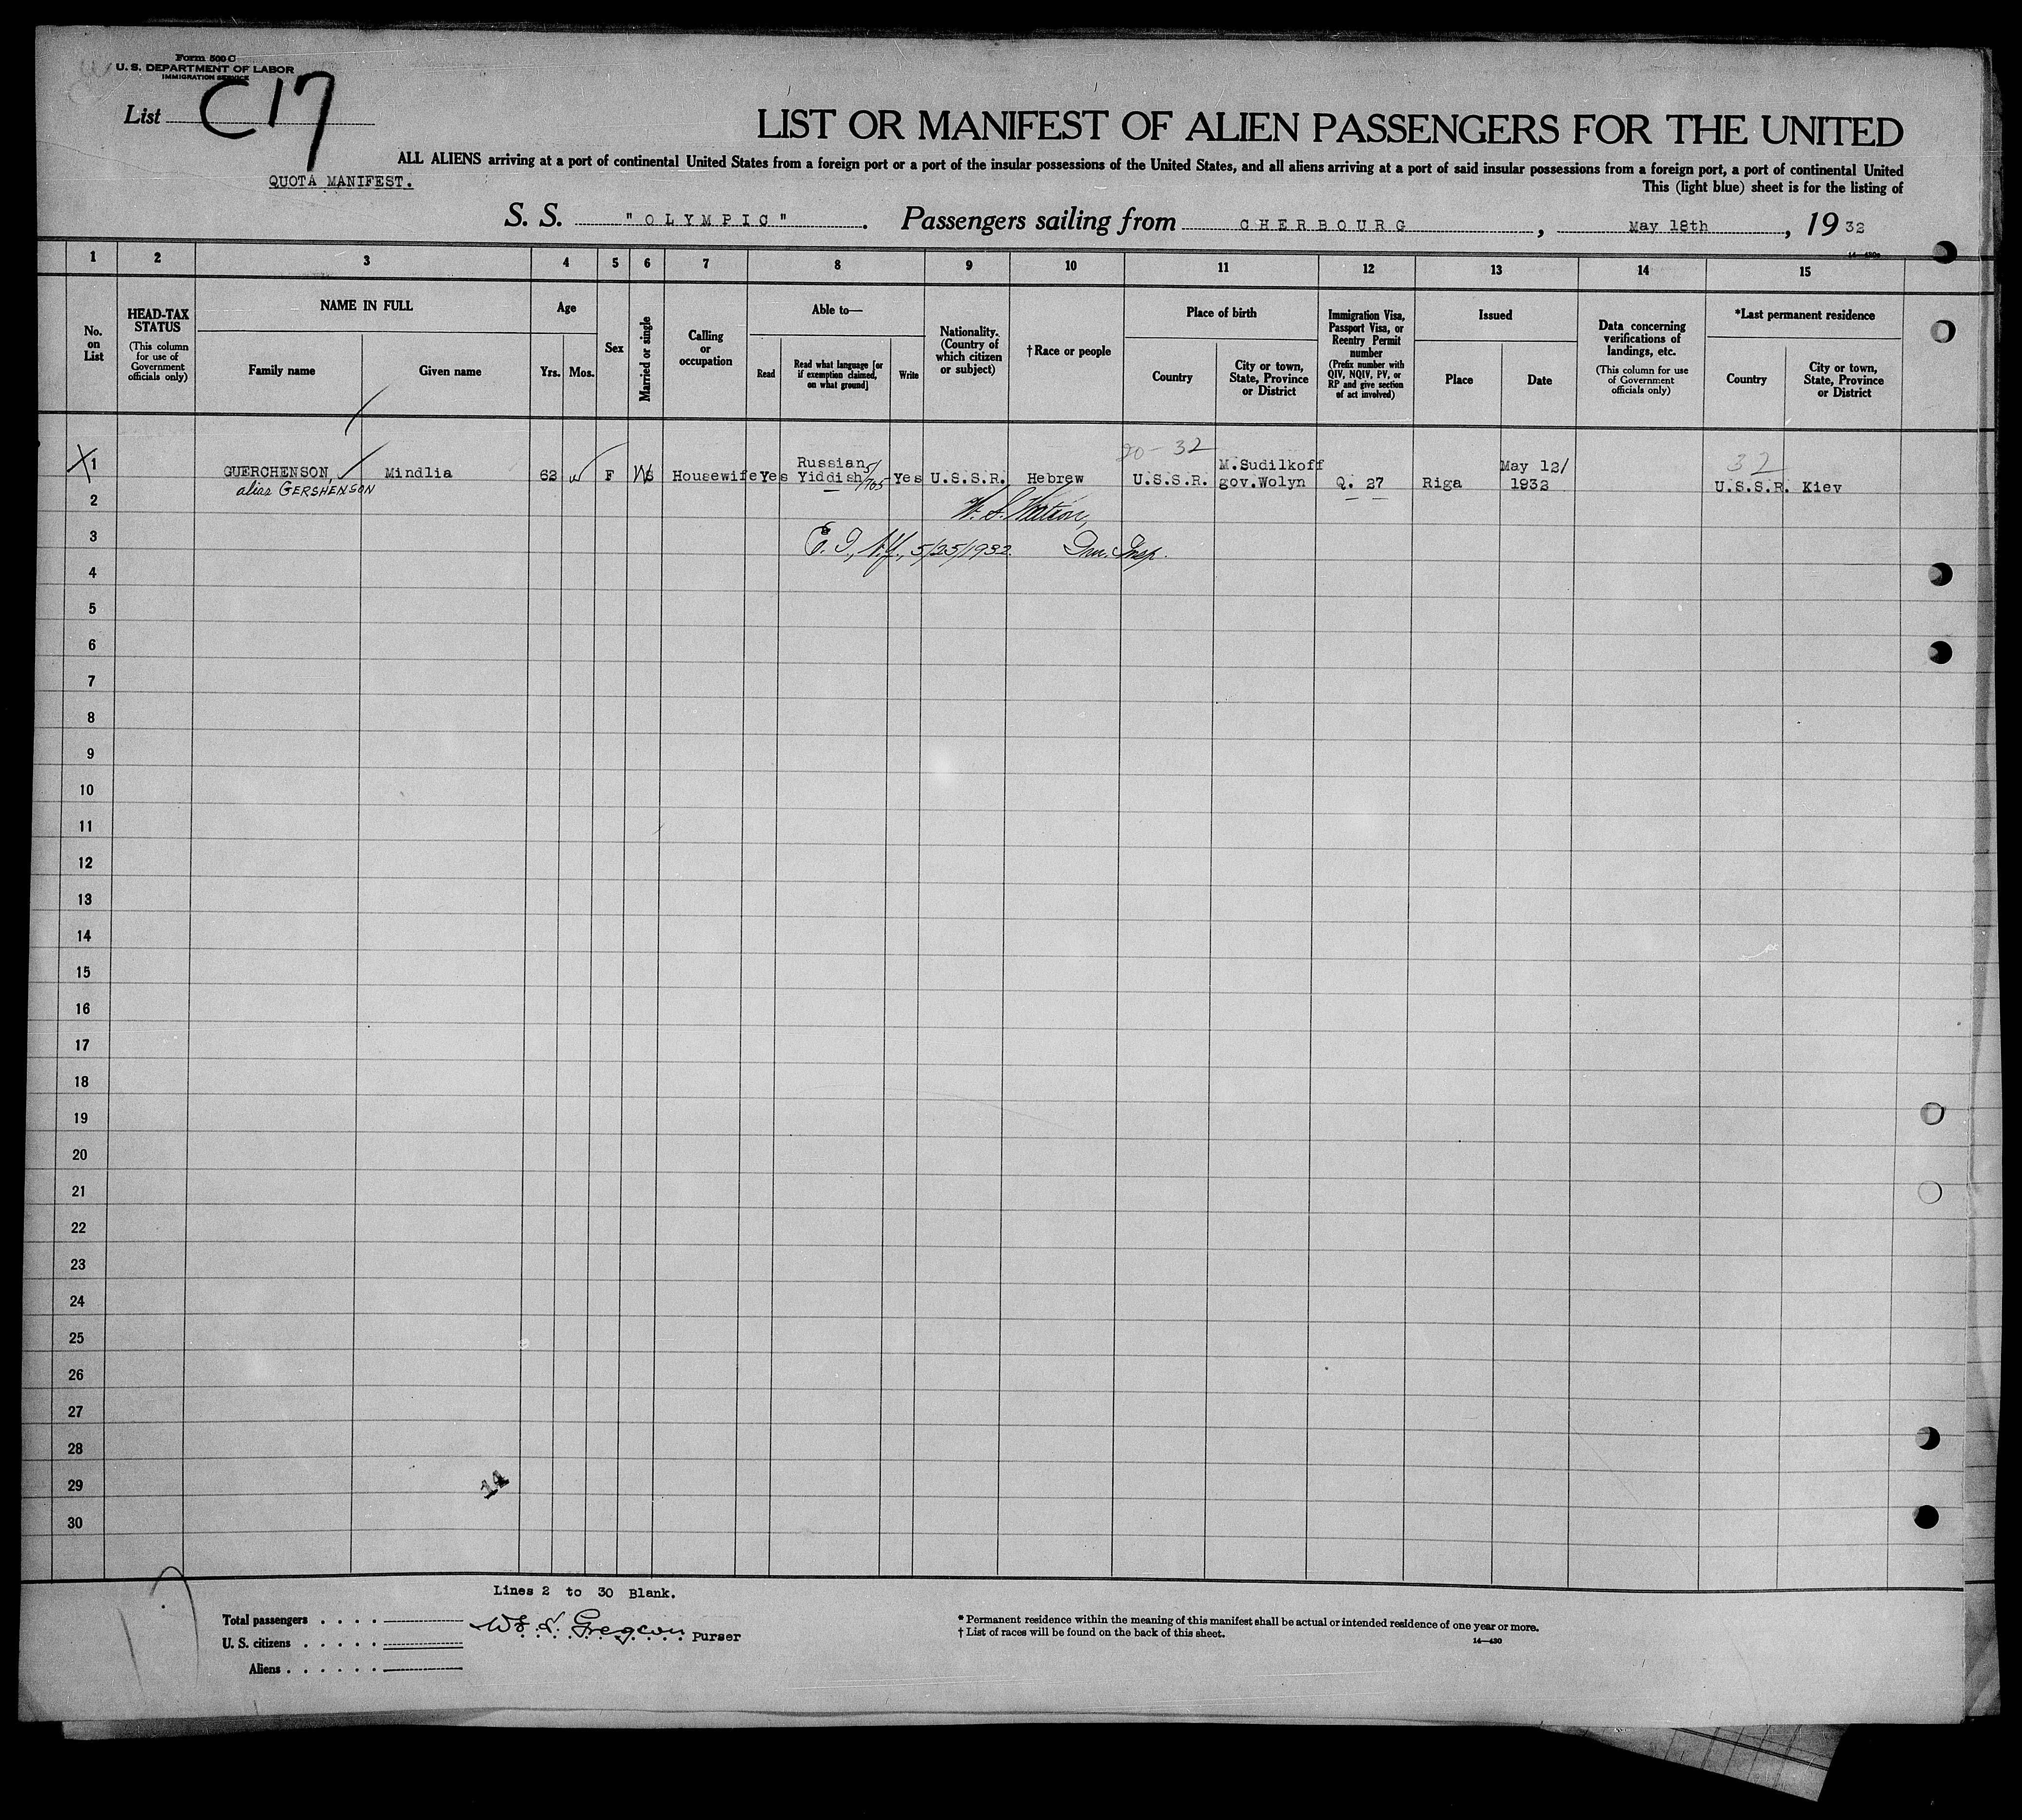 Form 500 C
U. S. DEPARTMENT OF LABOR
IMMIGRATION SERVICE
List C17
LIST OR MANIFEST OF ALIEN PASSENGERS FOR THE UNITED
ALL ALIENS arriving at a port of continental United States from a foreign port or a port of the insular possessions of the United States, and all aliens arriving at a port of said insular possessions from a foreign port, a port of continental United
QUOTA MANIFEST.
This (light blue) sheet is for the listing of
S. S. "OLYMPIC". Passengers sailing from CHERBOURG, May 18th, 1932
14—430
1 2 3 4 5 6 7 8 9 10 11 12 13 14 15
No. on List
HEAD-TAX STATUS
(This column for use of Government officials only)
NAME IN FULL
Family name
Given name
Age
Yrs. Mos.
Sex
Married or single
Calling or occupation
Able to—
Read
Read what language [or if exemption claimed, on what ground]
Write
Nationality. (Country of which citizen or subject)
†Race or people
Place of birth
Country
City or town, State, Province or District
Immigration Visa, Passport Visa, or Reentry Permit number
(Prefix number with QIV, NQIV, PV, or RP and give section of act involved)
Issued
Place
Date
Data concerning verifications of landings, etc.
(This column for use of Government officials only)
*Last permanent residence
Country
City or town, State, Province or District
20-32
32
1 GUERCHENSON, Mindlia 62 F Housewife Yes Russian Yiddish Yes U.S.S.R. Hebrew U.S.S.R. M.Sudilkoff gov.Wolyn Q. 27 Riga May 12/ 1932 U.S.S.R. Kiev
alias GERSHENSON
2 W. S. Watson,
3 E. I., N.Y., 5/25/1932. Imm. Insp.
4
5
6
7
8
9
10
11
12
13
14
15
16
17
18
19
20
21
22
23
24
25
26
27
28
29
14
30
Lines 2 to 30 Blank.
Total passengers
U. S. citizens
Aliens
Purser
* Permanent residence within the meaning of this manifest shall be actual or intended residence of one year or more.
† List of races will be found on the back of this sheet.
14—430